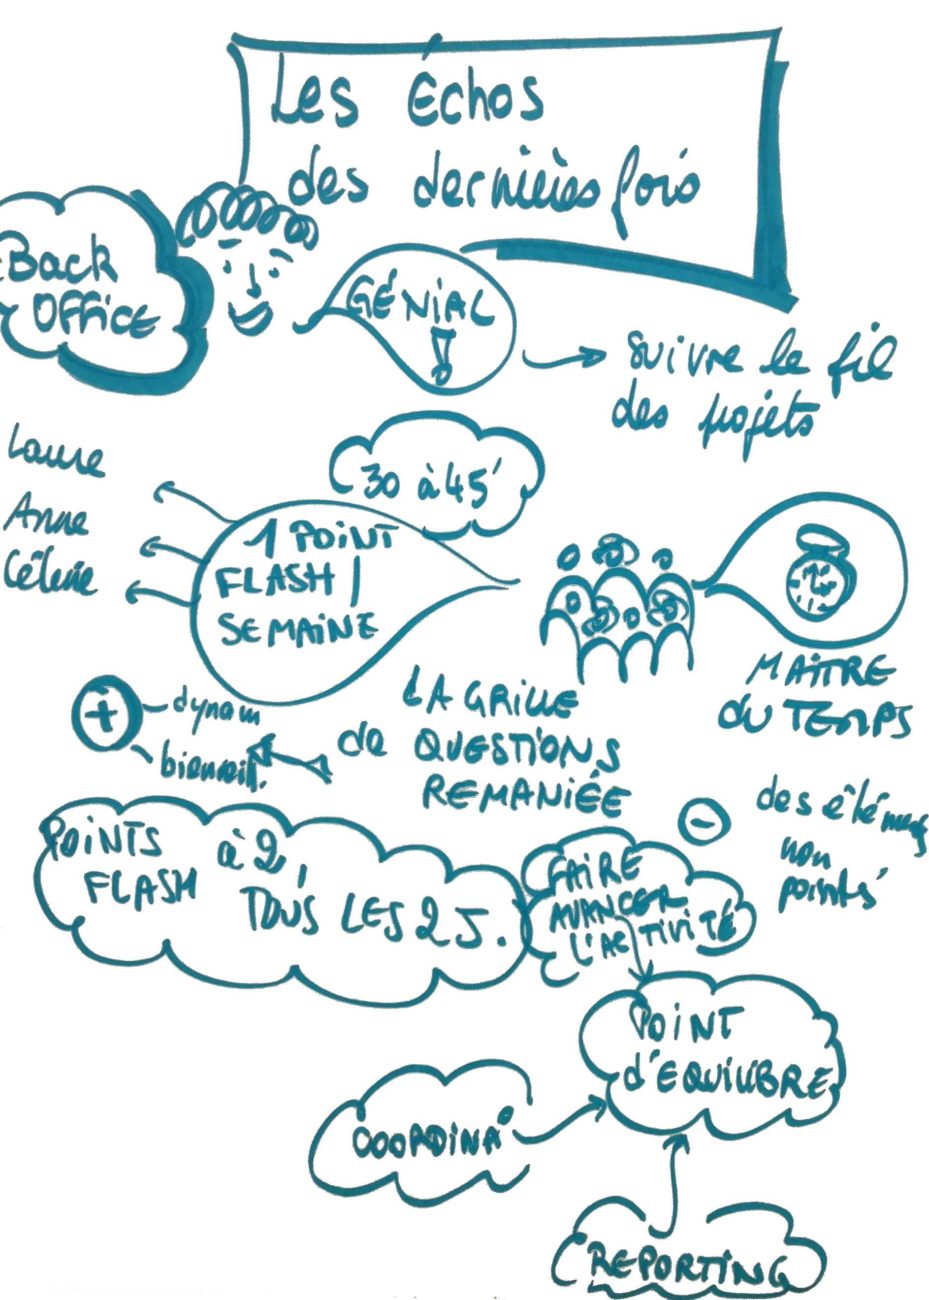 Les Échos
des dernières fois
Back
OFFiCE
GÉNiAL
!
suivre le fil
des projets
30 à 45'
Laure
Anne
Céline
1 POiNT
FLASH /
SEMAiNE
MAÎTRE
DU TEMPS
+
dynam
bienveil.
LA GRILLE
de QUESTIONS
REMANIÉE
-
des éléments
non
pointés
POiNTS
FLASH
à 2,
TOUS LES 2 J.
FAiRE
AVANCER
L'ACTiViTÉ
POiNT
d'EQUiLiBRE
COORDiNA°
REPORTiNG